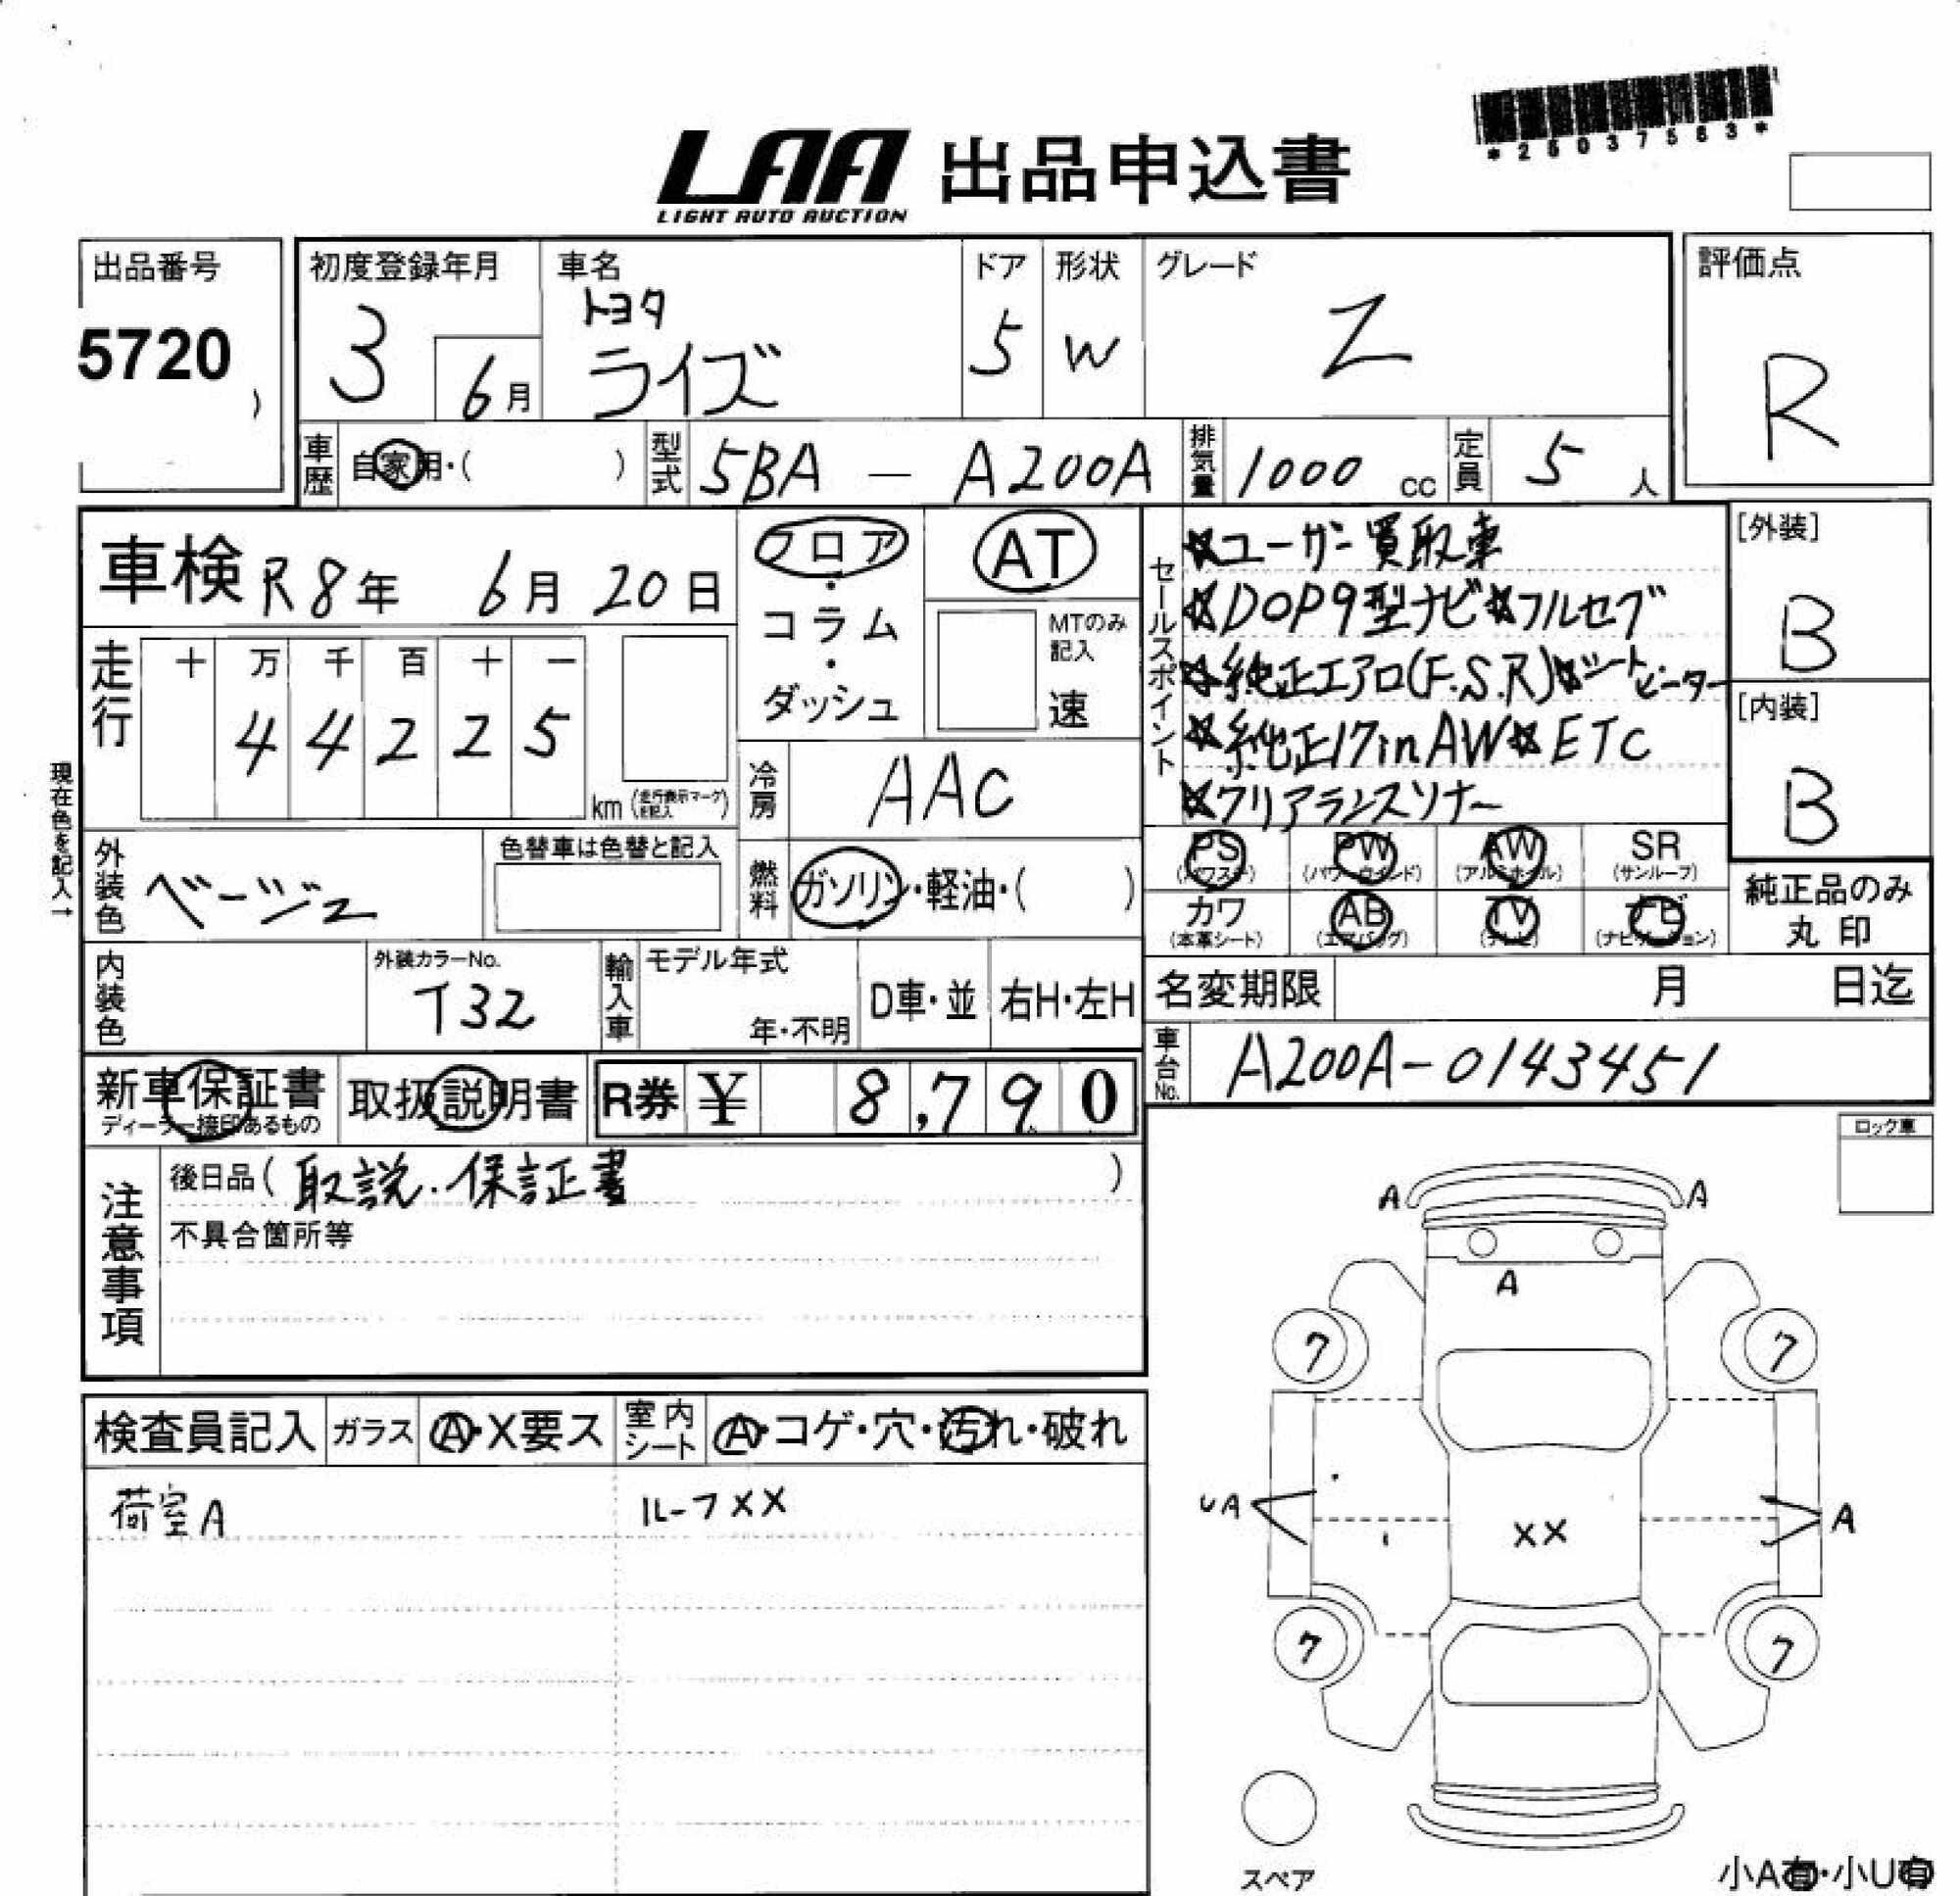 *25037563*
LAA 出品申込書
LIGHT AUTO AUCTION
出品番号 初度登録年月 車名 ドア 形状 グレード 評価点
5720 3 6月 トヨタ ライズ 5 W Z R
車歴 自家用・( ) 型式 5BA — A200A 排気量 1000 cc 定員 5 人
車検 R8年 6月 20日 フロア・コラム・ダッシュ AT
MTのみ記入 速
走行 十 万 千 百 十 一
4 4 2 2 5
km (走行表示マーク記入)
現在色を記入→
冷房 AAC
セールスポイント
☆ユーザー買取車
☆DOP9型ナビ☆フルセグ
☆純正エアロ(F.S.R)☆シートヒーター
☆純正17inAW☆ETC
☆クリアランスソナー
[外装]
B
[内装]
B
外装色 ベージュ 色替車は色替と記入
燃料 ガソリン・軽油・( )
PS (パワステ) PW (パワーウインド) AW (アルミホイル) SR (サンルーフ)
カワ (本革シート) AB (エアバッグ) TV (テレビ) ナビ (ナビゲーション)
純正品のみ
丸印
内装色 外装カラーNo. T32 輸入車 モデル年式 年・不明 D車・並 右H・左H
名変期限 月 日迄
車台No. A200A-0143451
新車保証書 取扱説明書 R券 ¥ 8,790
ディーラー捺印あるもの
注意事項
後日品( 取説.保証書 )
不具合箇所等
ロック車
検査員記入 ガラス A・X要ス 室内シート A・コゲ・穴・汚れ・破れ
荷室A ルーフXX
A A
A
7 7
UA XX A
7 7
スペア
小A有・小U有